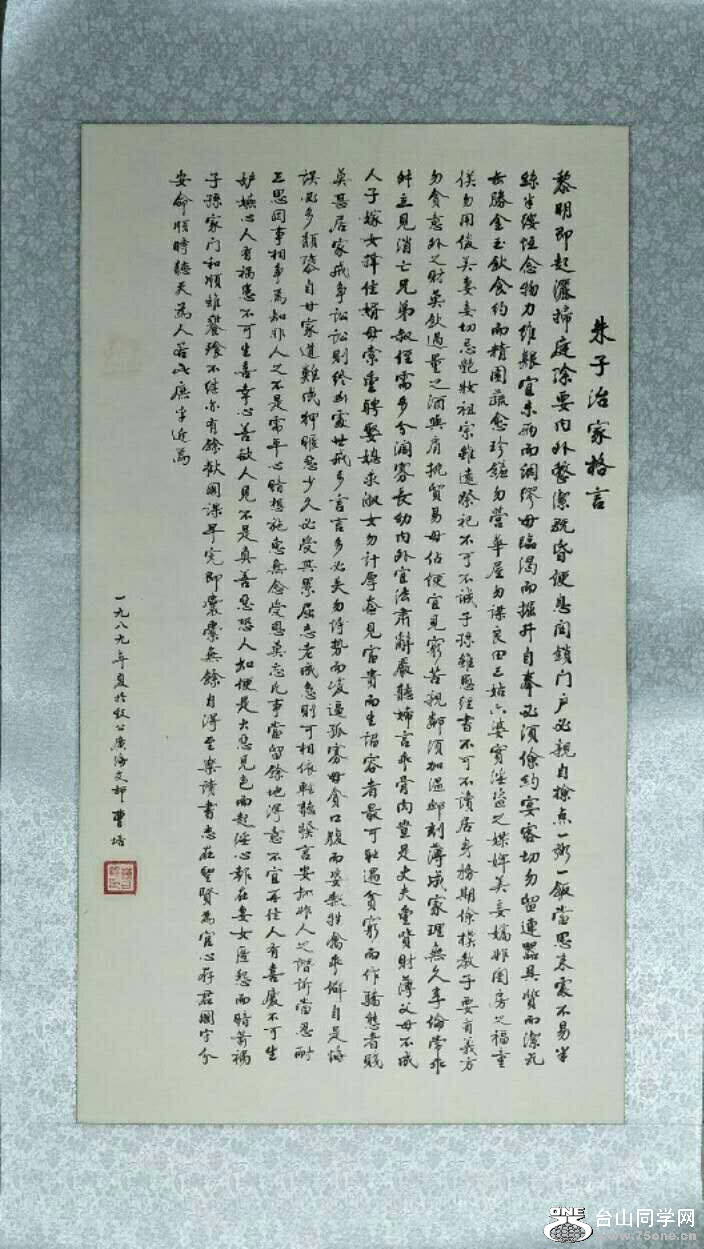 朱子治家格言
黎明即起灑掃庭除要内外整潔既昏便息関鎖门户必親自檢点一粥一飯當思来處不易半
絲半縷恒念物力維艱宜未雨而綢繆毋臨渴而掘井自奉必須儉約宴客切勿留連器具質而潔瓦
缶勝金玉飲食約而精園蔬愈珍饈勿營華屋勿谋良田三姑六婆實淫盗之媒婢美妾嬌非閨房之福童
僕勿用俊美妻妾切忌艷妝祖宗雖遠祭祀不可不誠子孫雖愚经書不可不讀居身務期儉樸教子要有義方
勿貪意外之财莫飲過量之酒與肩挑貿易毋佔便宜見窮苦親鄰須加温卹刻薄成家理無久享倫常乖
舛立見消亡兄弟叔侄需多分潤寡長幼内外宜法肃辭嚴聽婦言乖骨肉豈是丈夫重資財薄父母不成
人子嫁女擇佳婿毋索重聘娶媳求淑女勿计厚奩見富貴而生諂容者最可耻遇貧窮而作驕態者賤
莫甚居家戒争讼讼則终凶處世戒多言言多必失勿恃势而凌逼孤寡毋貪口腹而恣殺牲禽乖僻自是悔
误必多颓惰自甘家道難成狎暱惡少久必受其累屈志老成急則可相依轻聽發言安知非人之譖诉當忍耐
三思因事相争焉知非人之不是需平心暗想施惠無念受恩莫忘凡事當留餘地得意不宜再往人有喜慶不可生
妒嫉心人有禍患不可生喜幸心善欲人見不是真善惡恐人知便是大惡見色而起淫心報在妻女匿怨而暗箭禍
子孫家门和順雖饔飧不继亦有餘歡國課早完即囊橐無餘自得至樂讀書志在聖賢為官心存君國守分
安命順時聽天為人若此庶乎近焉
一九八九年夏於 公廣海文邨曹培
ONE 台山同学网
www.75one.cn